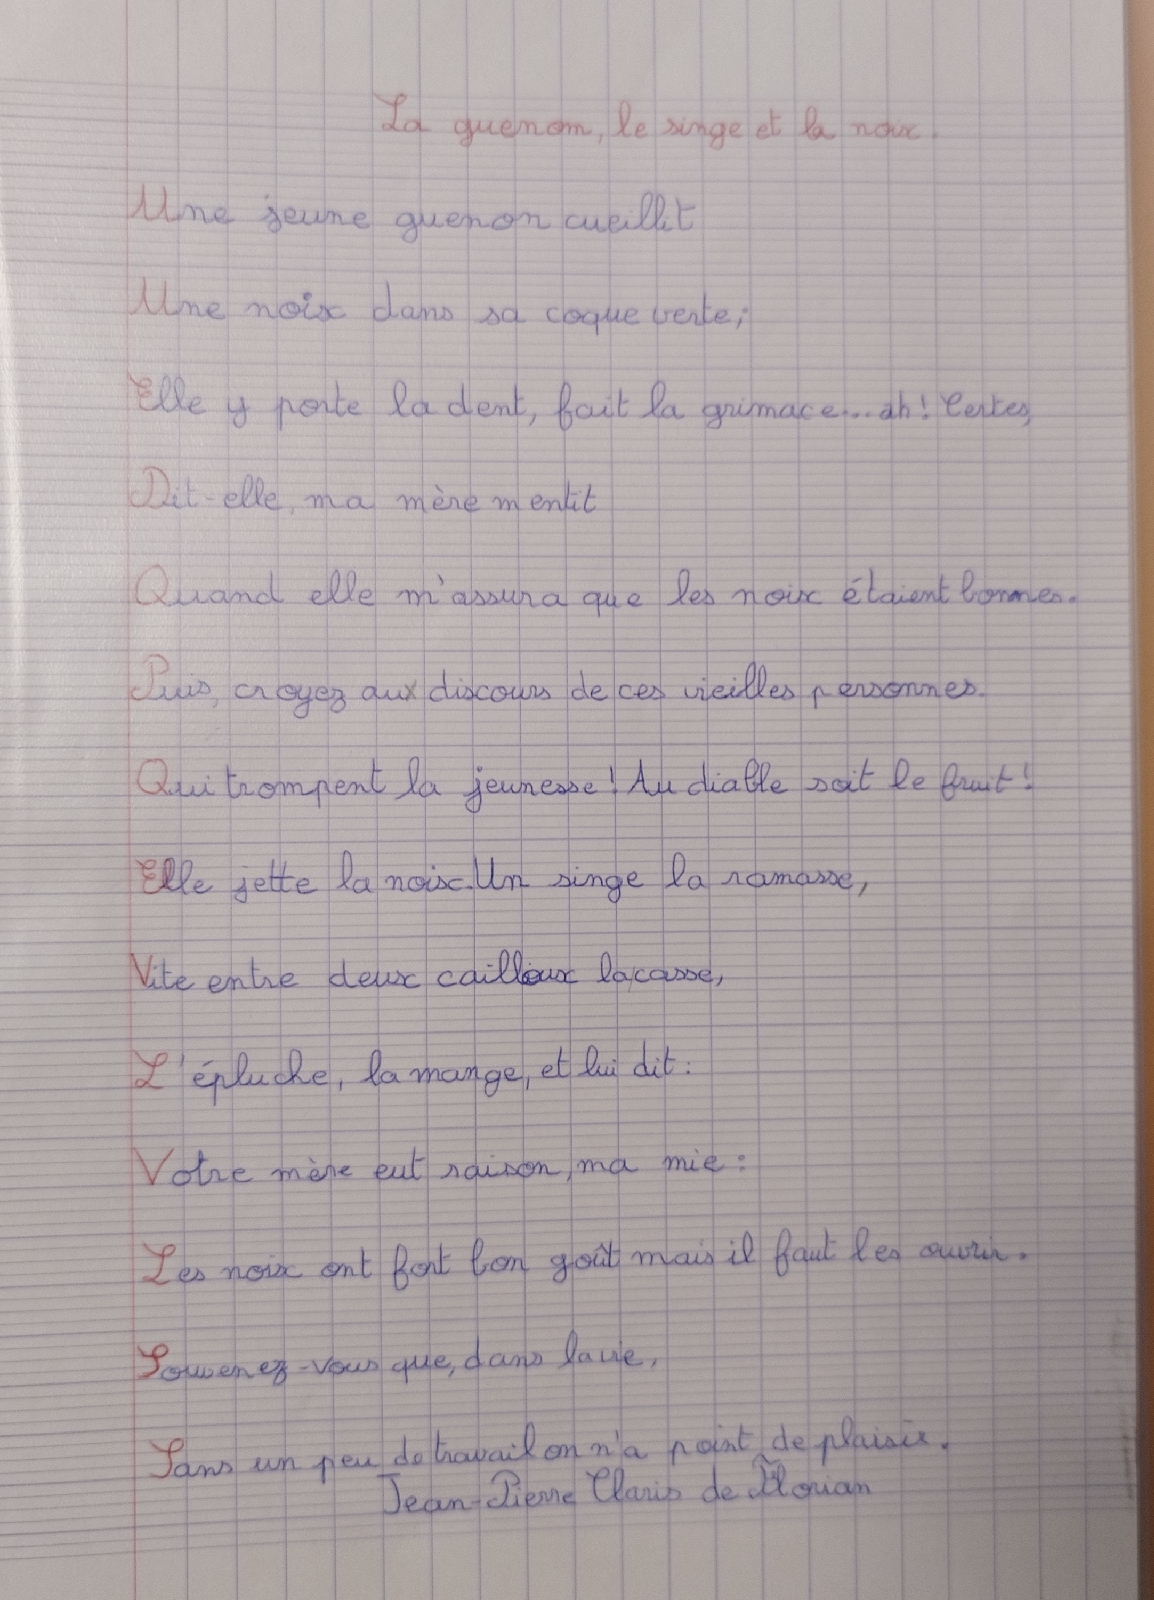 La guenon, le singe et la noix.
Une jeune guenon cueillit
Une noix dans sa coque verte;
Elle y porte la dent, fait la grimace... ah! Certes,
Dit-elle, ma mère mentit
Quand elle m'assura que les noix étaient bonnes.
Puis, croyez aux discours de ces vieilles personnes.
Qui trompent la jeunesse! Au diable soit le fruit!
Elle jette la noix. Un singe la ramasse,
Vite entre deux cailloux la casse,
L'épluche, la mange, et lui dit:
Votre mère eut raison, ma mie:
Les noix ont fort bon goût mais il faut les ouvrir.
Souvenez-vous que, dans la vie,
Sans un peu de travail on n'a point de plaisir.
Jean-Pierre Claris de Florian